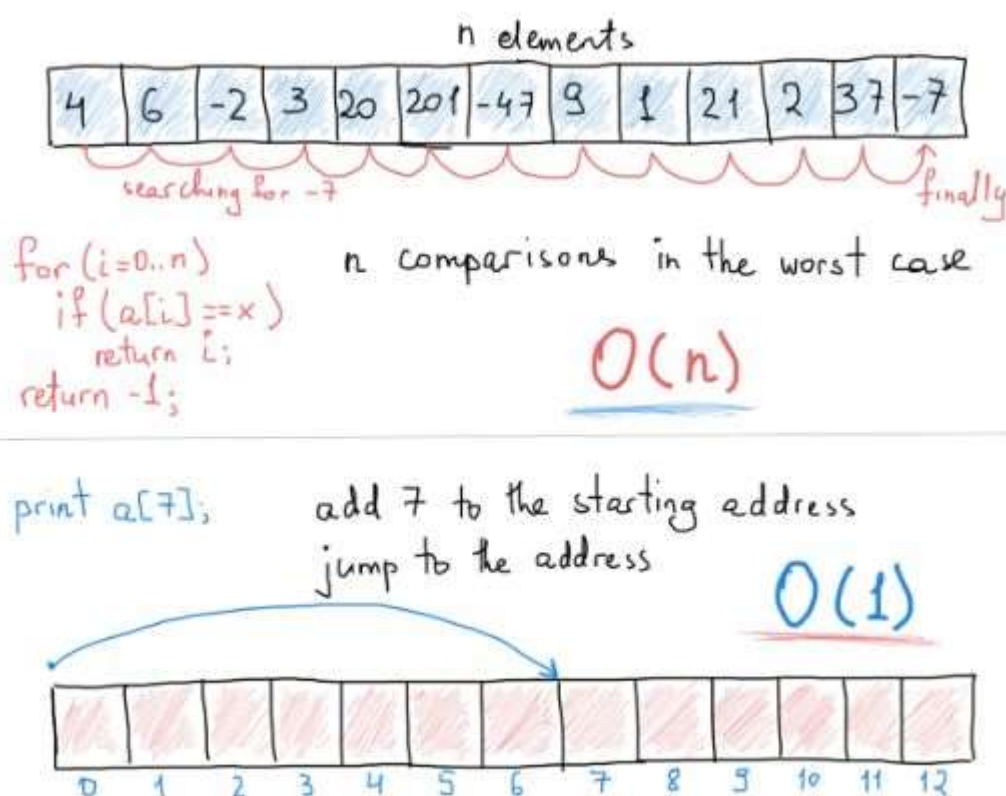 n elements
4 6 -2 3 20 201 -47 9 1 21 2 37 -7
searching for -7
finally
for (i=0..n)
if (a[i]==x)
return i;
return -1;
n comparisons in the worst case
O(n)
print a[7];
add 7 to the starting address
jump to the address
O(1)
0 1 2 3 4 5 6 7 8 9 10 11 12